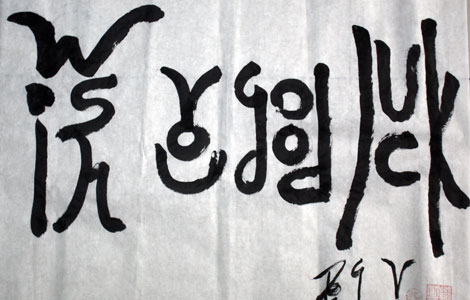 wish you good luck